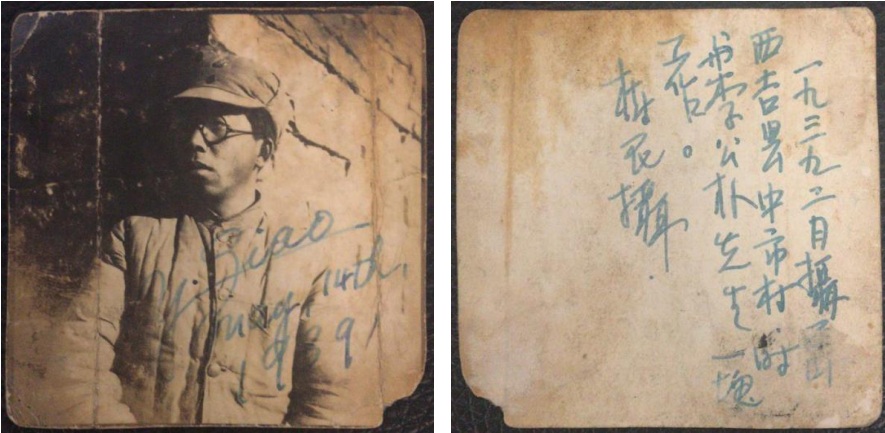 Y. Ziao
May, 14th,
1939
一九三九二月攝山
西吉县中市村时
李公朴先生一塊
工作。
民攝